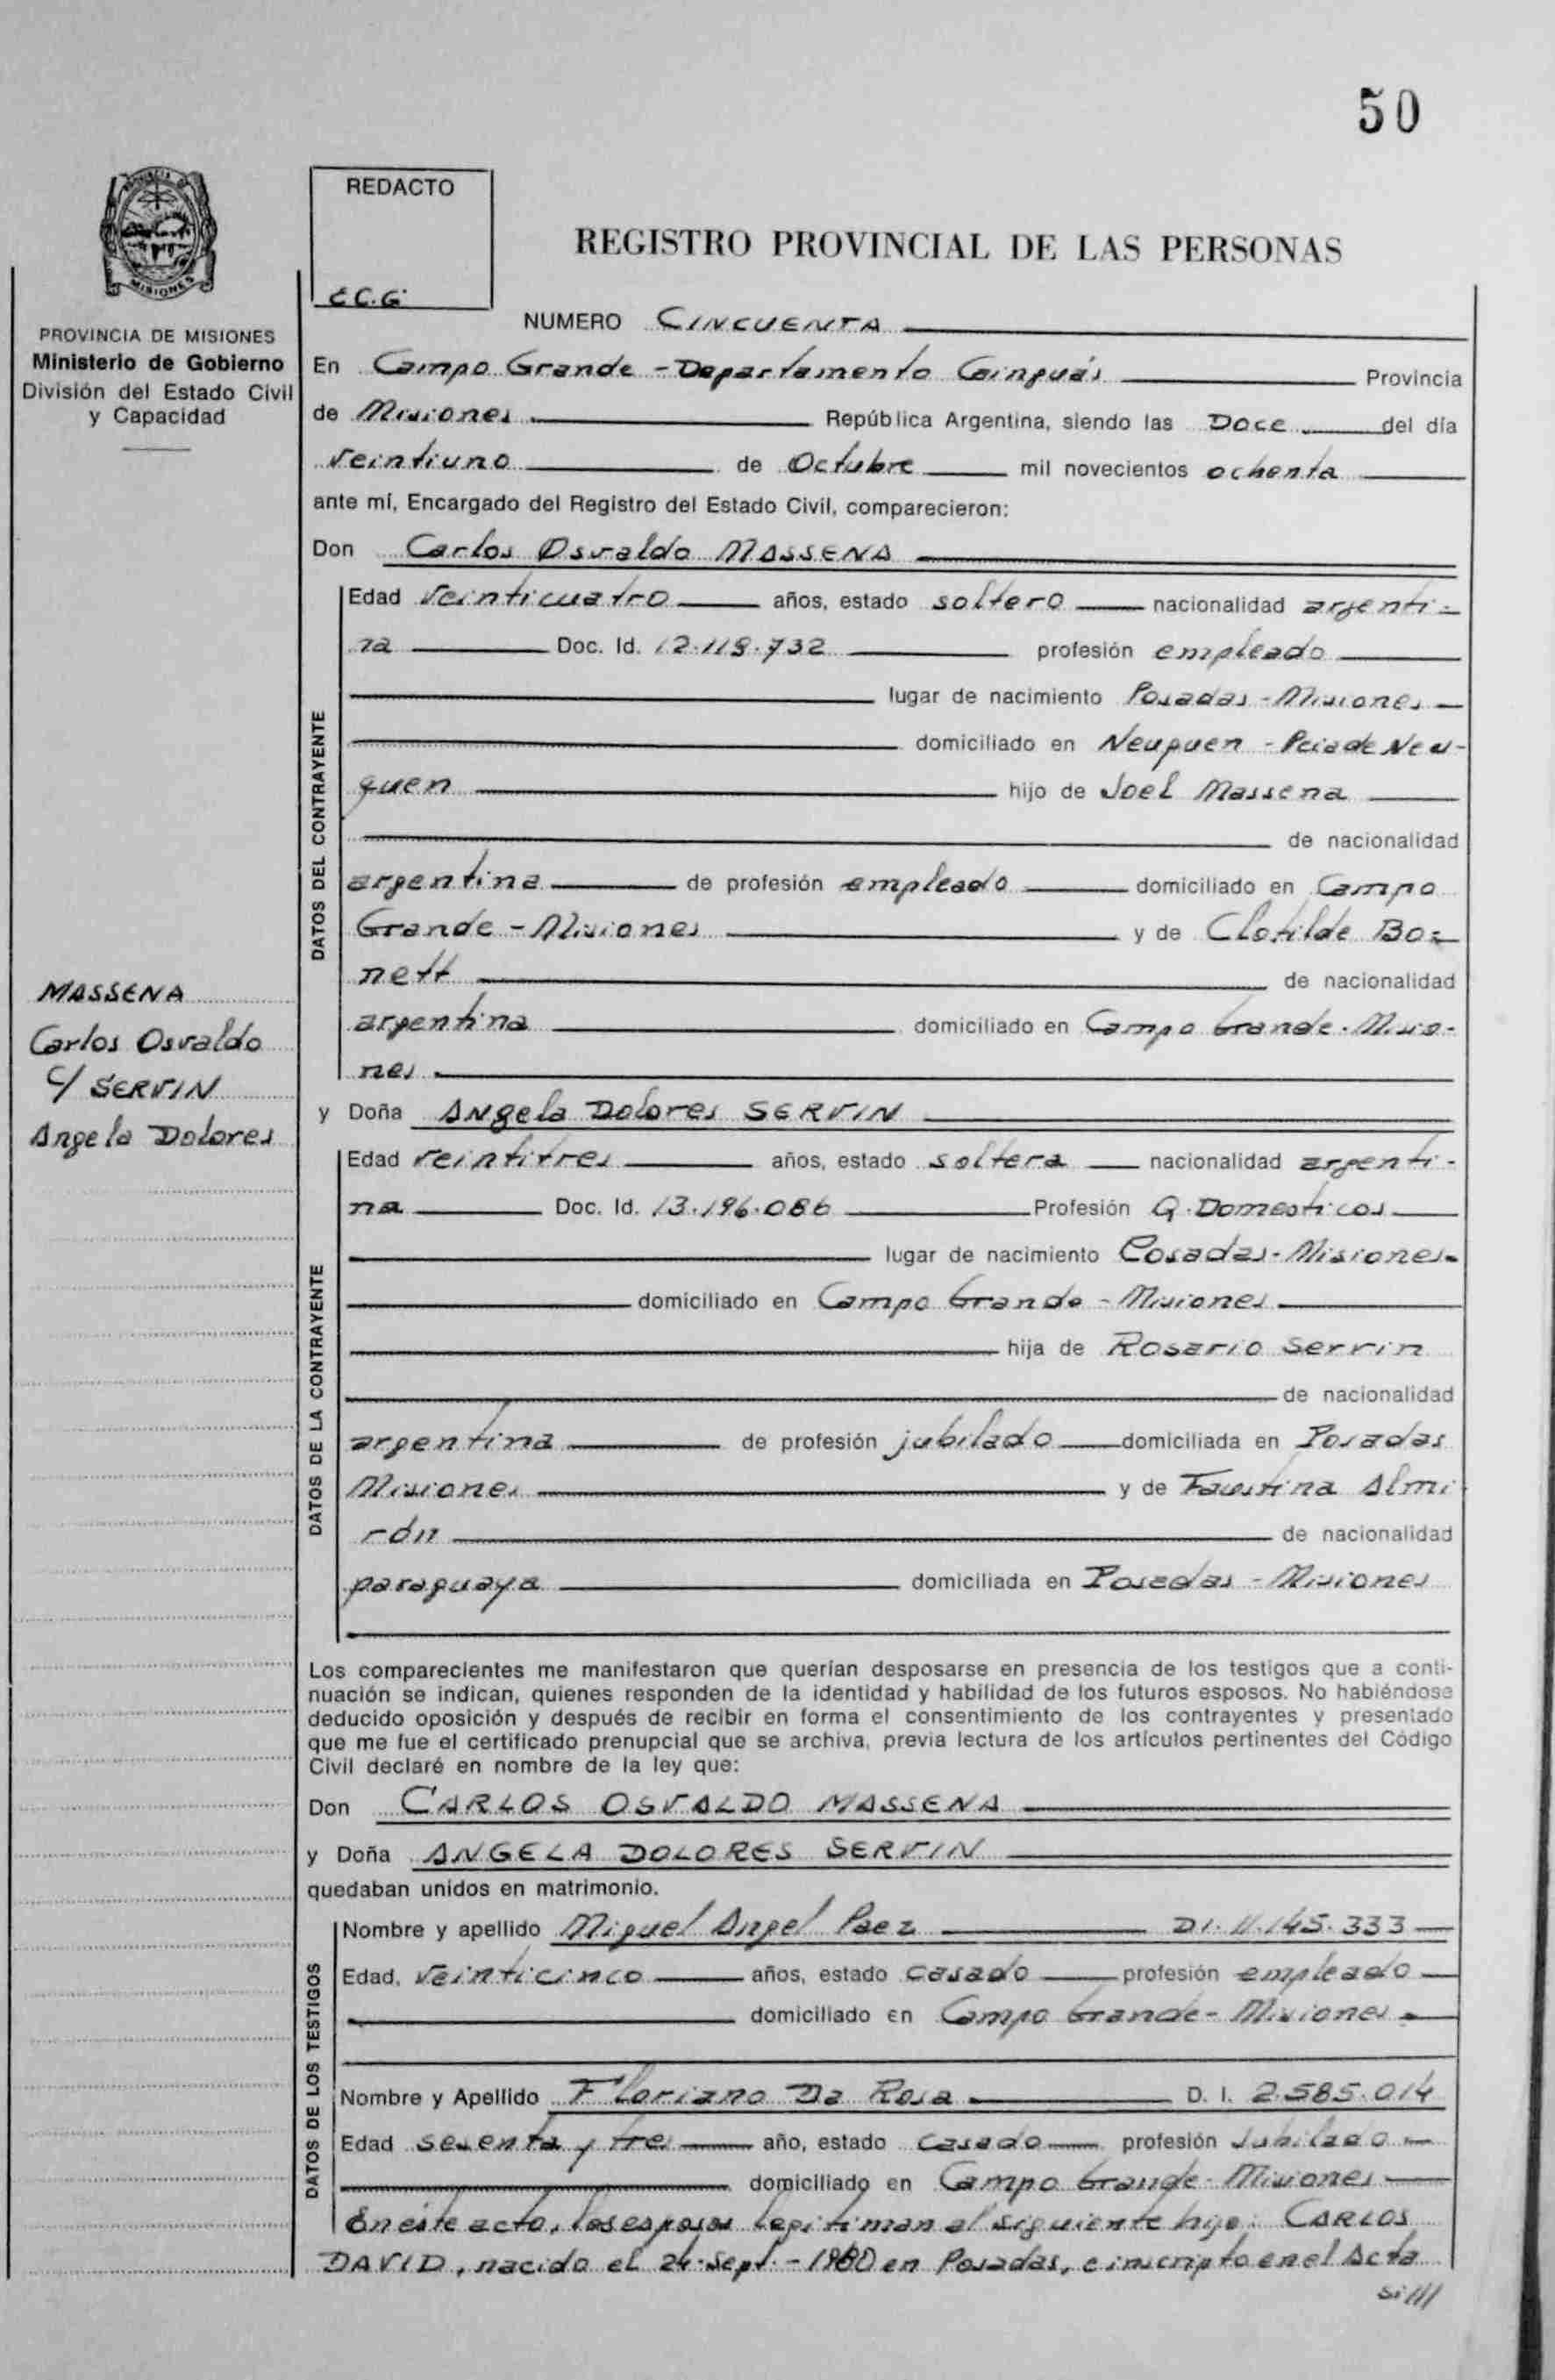 50
REDACTO
REGISTRO PROVINCIAL DE LAS PERSONAS
MISIONES
PROVINCIA DE MISIONES
Ministerio de Gobierno
División del Estado Civil
y Capacidad
NUMERO CINCUENTA
En Campo Grande - Departamento Cainguás Provincia
de Misiones República Argentina, siendo las Doce del día
veintiuno de Octubre mil novecientos ochenta
ante mí, Encargado del Registro del Estado Civil, comparecieron:
Don Carlos Osvaldo MASSENA
DATOS DEL CONTRAYENTE
Edad veinticuatro años, estado soltero nacionalidad argenti-
na Doc. Id. 12.118.732 profesión empleado
lugar de nacimiento Posadas - Misiones
domiciliado en Neuquen - Pcia de Neu-
quen hijo de Joel Massena
de nacionalidad
argentina de profesión empleado domiciliado en Campo
Grande - Misiones y de Clotilde Bo-
nett de nacionalidad
argentina domiciliado en Campo Grande - Misio-
nes
MASSENA
Carlos Osvaldo
c/ SERVIN
Angela Dolores
y Doña Angela Dolores SERVIN
DATOS DE LA CONTRAYENTE
Edad veintitres años, estado soltera nacionalidad argenti-
na Doc. Id. 13.196.086 Profesión Q. Domesticos
lugar de nacimiento Posadas - Misiones
domiciliado en Campo Grande - Misiones
hija de Rosario Servin
de nacionalidad
argentina de profesión jubilado domiciliada en Posadas
Misiones y de Faustina Almi
rón de nacionalidad
paraguaya domiciliada en Posadas - Misiones
Los comparecientes me manifestaron que querían desposarse en presencia de los testigos que a conti-
nuación se indican, quienes responden de la identidad y habilidad de los futuros esposos. No habiéndose
deducido oposición y después de recibir en forma el consentimiento de los contrayentes y presentado
que me fue el certificado prenupcial que se archiva, previa lectura de los artículos pertinentes del Código
Civil declaré en nombre de la ley que:
Don CARLOS OSVALDO MASSENA
y Doña ANGELA DOLORES SERVIN
quedaban unidos en matrimonio.
DATOS DE LOS TESTIGOS
Nombre y apellido Miguel Angel Paez DI. 11.145.333
Edad, veinticinco años, estado casado profesión empleado
domiciliado en Campo Grande - Misiones
Nombre y Apellido Floriano Da Rosa D. I. 2.585.014
Edad sesenta y tres año, estado casado profesión Jubilado
domiciliado en Campo Grande - Misiones
En este acto, los esposos legitiman al siguiente hijo: CARLOS
DAVID, nacido el 24-Sept.-1980 en Posadas, e inscripto en el Acta